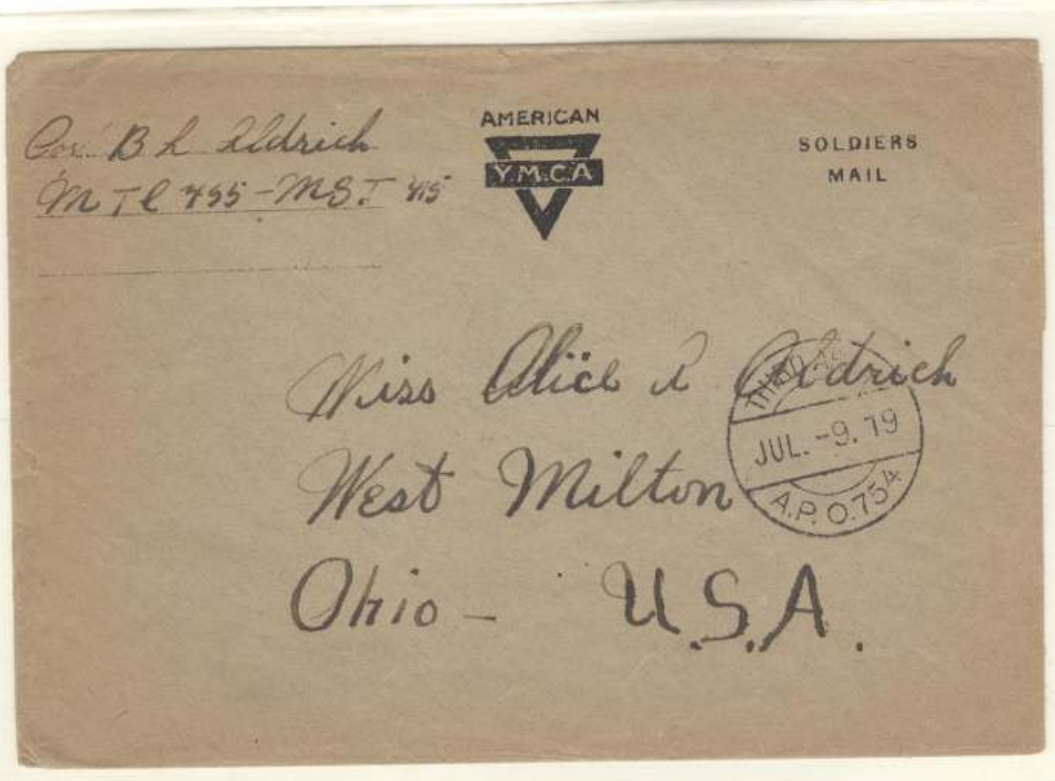 Cor. B L Aldrich
M T C 455 - M S T 415
AMERICAN
Y.M.C.A
SOLDIERS
MAIL
Miss Alice R Aldrich
West Milton
Ohio - U.S.A.
THIRD
JUL. -9. 19
A.P.O. 754